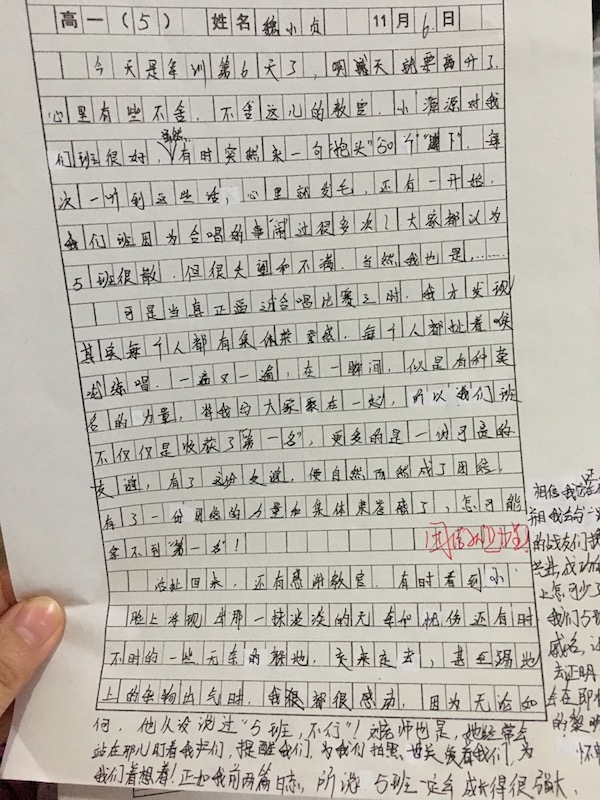 高一（5） 姓名 魏小贞 11月6日
今天是军训第6天了，明天就要离开了，
心里有些不舍，不舍这儿的教官。小源源对我
们班很好，虽然有时突然来一句"抱头"50个"蹲下"，每
次一听到这些话，心里就发毛，还有一开始，
我们班因为合唱的事闹过很多次！大家都认为
5班很散，但很失望和不满，当然我也是，……
可是当真正面对合唱比赛之时，我才发现
其实每个人都有集体荣誉感，每个人都扯着喉
咙练唱，一遍又一遍，在一瞬间，似是有种莫
名的力量，将我与大家聚在一起，所以我们班
不仅仅是收获了"第一名"，更多的是一份可贵的
友谊，有了这份友谊，便自然而然成了团结，
有了一份团结的力量加集体荣誉感了，怎可能
拿不到"第一名"！
话扯回来，还有感谢教官，有时看到小
脸上浮现出那一抹淡淡的无奈和忧伤还有时
不时的一些无奈的，走来走去，甚至踢地
上的杂物出气时，我很都很感动，因为无论如
何，他从没说过"5班，不行"！老师也是，她经常会
站在那儿盯着我们，提醒我们，为我们拍照，为
我们着想着！正如我前两篇日志，所说：5班一定会成长得很强大，
相信我
的战友们
成功
上怎可少了
我们5班
威名，
去证明
会在即
的黎明